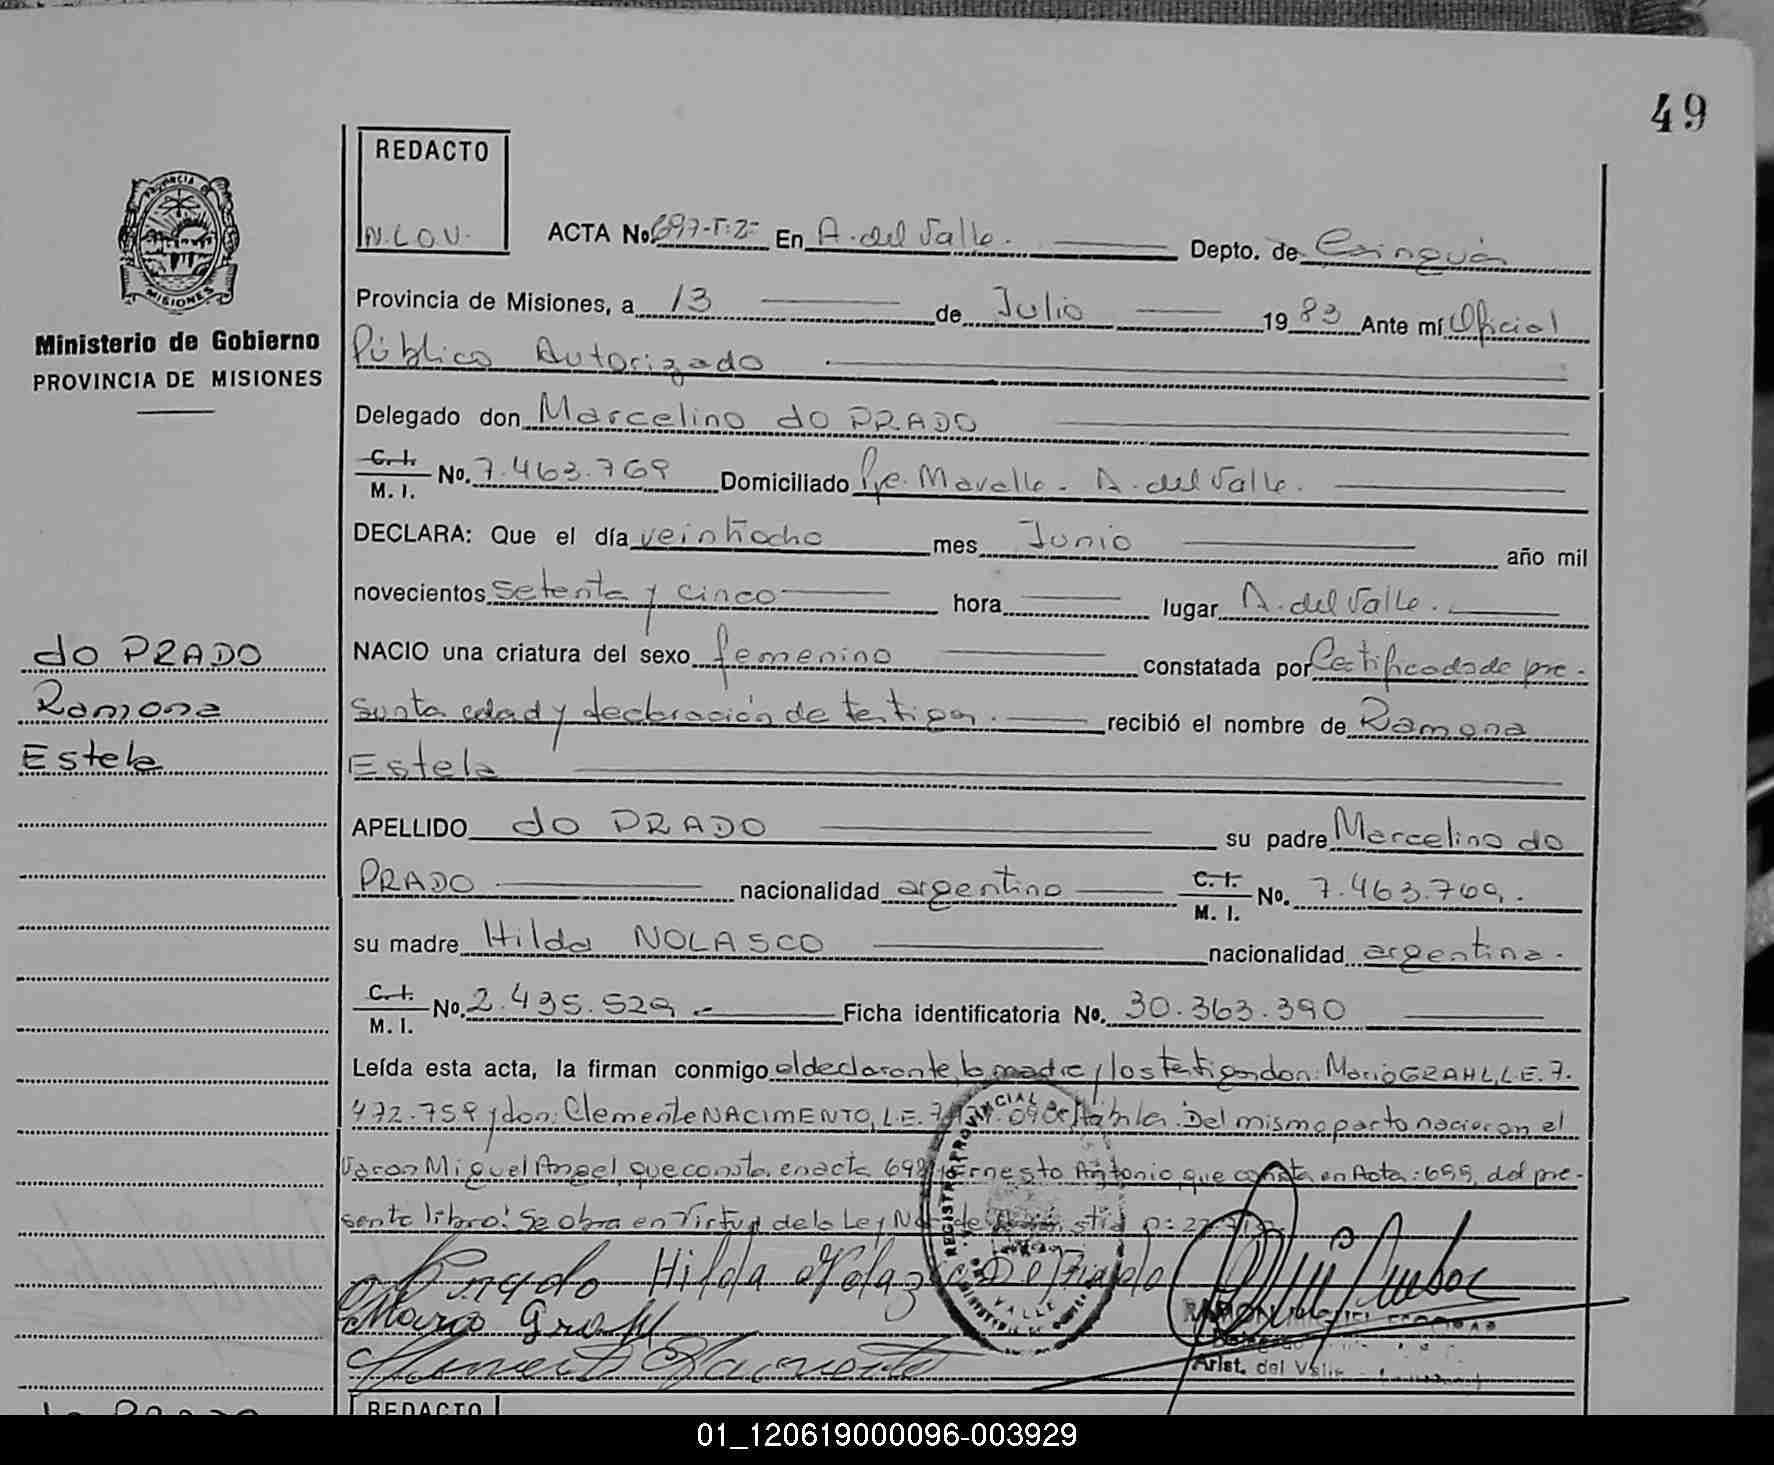 49
REDACTO
N.L.O.V.
PROVINCIA DE
MISIONES
Ministerio de Gobierno
PROVINCIA DE MISIONES
ACTA No. 697-T:2- En A. del Valle. Depto. de Cainguás
Provincia de Misiones, a 13 de Julio 1983 Ante mí Oficial
Público Autorizado
Delegado don Marcelino do PRADO
C. I.
M. I. No. 7.463.769 Domiciliado Pje. Mavalle - A. del Valle.
DECLARA: Que el día veintiocho mes Junio año mil
novecientos setenta y cinco hora lugar A. del Valle.
do PRADO
Ramona
Estela
NACIO una criatura del sexo femenino constatada por Certificado de pre-
sunta edad y declaración de testigos. recibió el nombre de Ramona
Estela
APELLIDO do PRADO su padre Marcelino do
PRADO nacionalidad argentino C. I.
M. I. No. 7.463.769.
su madre Hilda NOLASCO nacionalidad argentina.
C. I.
M. I. No. 2.435.529 Ficha identificatoria No. 30.363.390
Leída esta acta, la firman conmigo el declarante, la madre y los testigos don: Mario GRAHL, L.E. 7.
472.759 y don: Clemente NACIMENTO, L.E. Del mismo parto nacieron el
Varon Miguel Angel, que consta en acta 698 y Ernesto Antonio, que consta en Acta: 699, del pre-
sente libro! Se obra en Virtud de la Ley
REGISTRO PROVINCIAL
VALLE
do Prado Hilda
Clemente
RAMON
Arist. del Valle
REDACTO
do PRADO
01_120619000096-003929